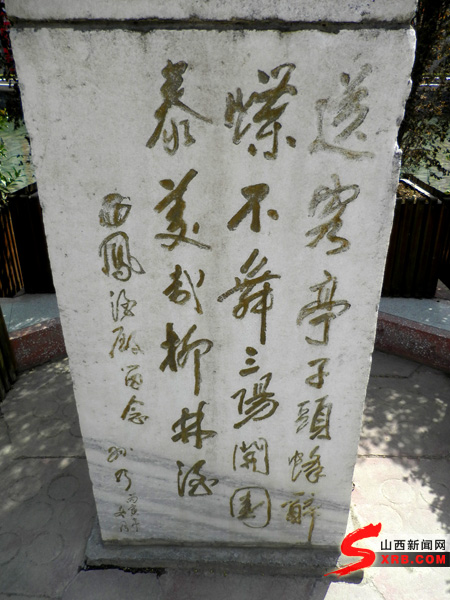 送客亭子頭蜂醉
蝶不舞三陽開國
泰美哉柳林酒
西鳳酒廠留念
山西新闻网
SXRB.COM